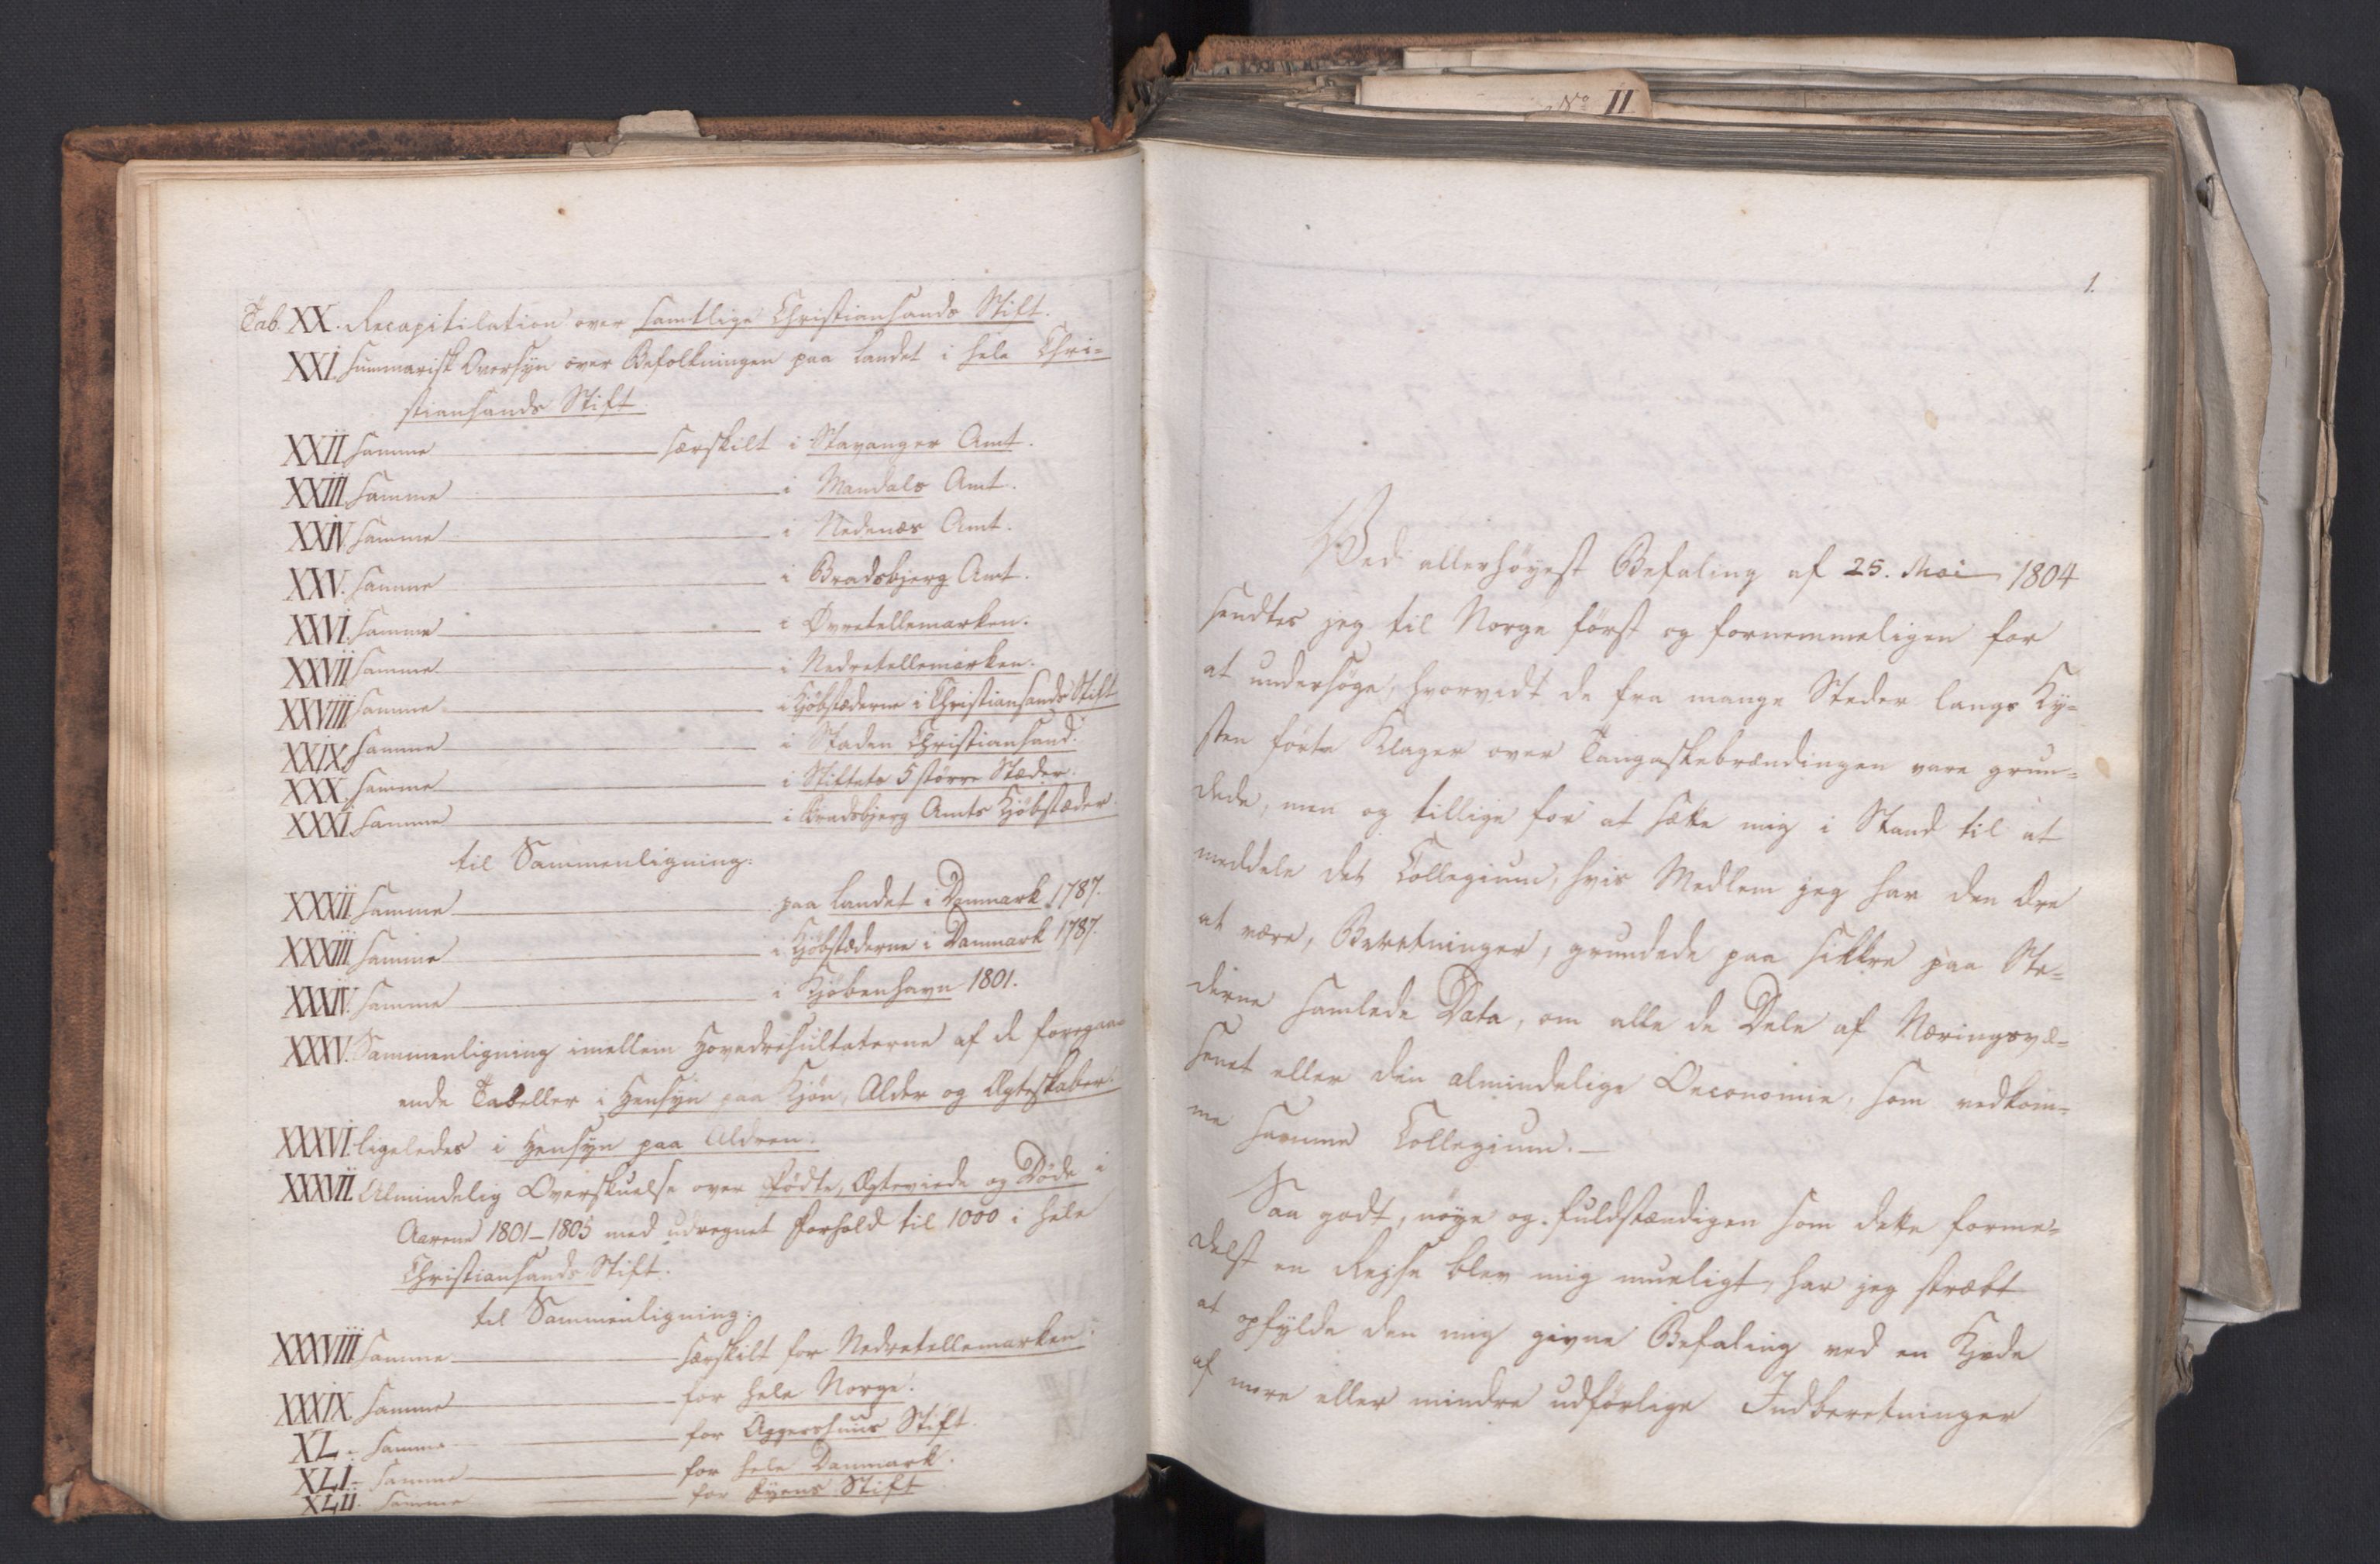 Tab. XX. Recapitilation over samtlige Christiansands Stift.
XXI. Summarisk Oversyn over Befolkningen paa Landet i hele Chri=
stiansands Stift.
XXII. Samme — særskilt i Stavanger Amt.
XXIII. Samme — i Mandals Amt.
XXIV. Samme — i Nedenæs Amt.
XXV. Samme — i Bradsbjerg Amt.
XXVI. Samme — i Øvretellemarken.
XXVII. Samme — i Nedretellemarken.
XXVIII. Samme — i Kjøbstæderne i Christiansands Stift
XXIX. Samme — i Staden Christiansand.
XXX. Samme — i Stiftets 5 större Stæder.
XXXI. Samme — i Bradsbjerg Amts Kjöbstæder.
til Sammenligning:
XXXII. Samme — paa Landet i Danmark 1787.
XXXIII. Samme — i Kjöbstæderne i Danmark 1787.
XXXIV. Samme — i Kjöbenhavn 1801.
XXXV. Sammenligning imellem Hovedresultaterne af de foregaa=
ende Tabeller i Hensyn paa Kjön, Alder og Ægteskaber.
XXXVI. ligeledes i Hensyn paa Aldren.
XXXVII. Almindelig Overskuelse over Födte, Ægteviede og Döde i
Aarene 1801–1805 med udregnet Forhold til 1000 i hele
Christiansands Stift.
til Sammenligning:
XXXVIII. Samme — særskilt for Nedretellemarken.
XXXIX. Samme — for hele Norge.
XL. Samme — for Aggershuus Stift.
XLI. Samme — for hele Danmark.
XLII. Samme — for Fyens Stift
No II
1.
Ved allerhöyest Befaling af 25. Mai 1804
sendtes jeg til Norge först og fornemmeligen for
at undersöge, hvorvidt de fra mange Steder langs Ky=
sten förte Klager over Tangaskebrændingen vare grun=
dede, men og tillige for at sætte mig i Stand til at
meddele det Collegium, hvis Medlem jeg har den Ære
at være, Beretninger, grundede paa sikkre paa Ste=
derne samlede Data, om alle de Dele af Næringsvæ=
senet eller den almindelige Oeconomie, som vedkom=
me samme Collegium. —
Saa godt, nöye og fuldstændigen som dette forme=
delst en Rejse blev mig mueligt, har jeg stræbt
at opfylde den mig givne Befaling ved en Kjæde
af mere eller mindre udförlige Indberetninger